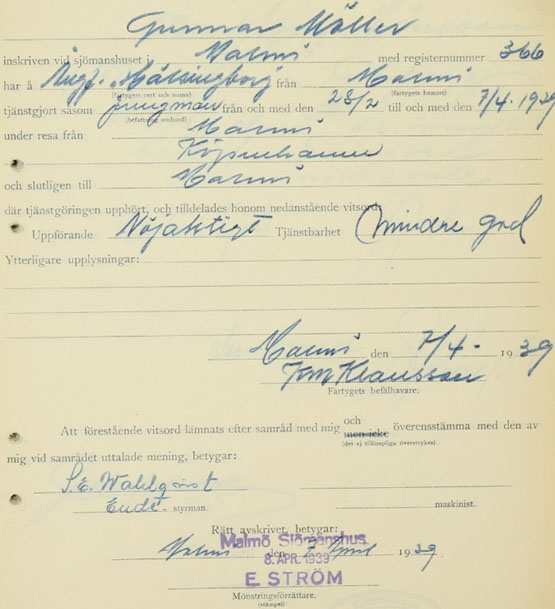 Gunnar Möller
inskriven vid sjömanshuset i Malmö med registernummer 366
har å Ångf. "Mälsingborg" från Malmö
(fartygets sort och namn) (fartygets hemort)
tjänstgjort såsom jungman från och med den 28/2 till och med den 7/4 - 1939
(befattning ombord)
under resa från Malmö
Köpenhamn
och slutligen till Malmö
där tjänstgöringen upphört, och tilldelades honom nedanstående vitsord:
Uppförande Nöjaktigt Tjänstbarhet Mindre god
Ytterligare upplysningar:
Malmö den 7/4 - 1939
Klausson
Fartygets befälhavare.
Att förestående vitsord lämnats efter samråd med mig och överensstämma med den av
men icke
(det ej tillämpliga överstrykes)
mig vid samrådet uttalade mening, betygar:
S.E. Wahlqvist
styrman. maskinist.
Rätt avskrivet, betygar:
Malmö Sjömanshus
Malmö den 8 April 1939
8. APR. 1939
E STRÖM
Mönstringsförrättare.
(stämpel)